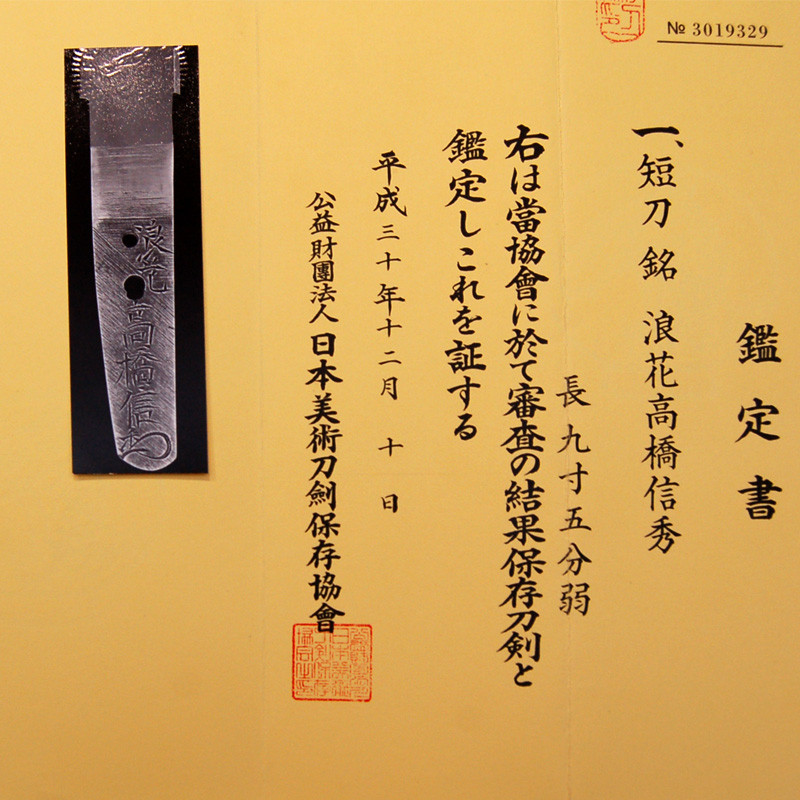 № 3019329
鑑定書
一、短刀 銘 浪花高橋信秀
長九寸五分弱
右は當協會に於て審査の結果保存刀剣と
鑑定しこれを証する
平成三十年十二月 十 日
公益財團法人 日本美術刀劍保存協會
浪花
高橋信秀